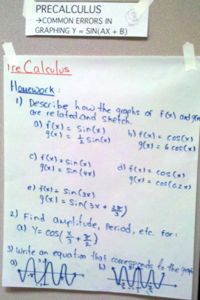 PRECALCULUS
→COMMON ERRORS IN
GRAPHING Y = SIN(AX + B)
re Calculus
Homework:
1) Describe how the graphs of f(x) and g(x)
are related and sketch.
a) f(x) = sin(x)
g(x) = 1/2 sin(x)
b) f(x) = cos(x)
g(x) = 6 cos(x)
c) f(x) = sin(x)
g(x) = sin(4x)
d) f(x) = cos(x)
g(x) = cos(0.2x)
e) f(x) = sin(3x)
g(x) = sin(3x + 2π/3)
2) Find amplitude, period, etc. for:
a) Y = cos(x/3 + π/2)
3) Write an equation that corresponds to the graph
a)
b)